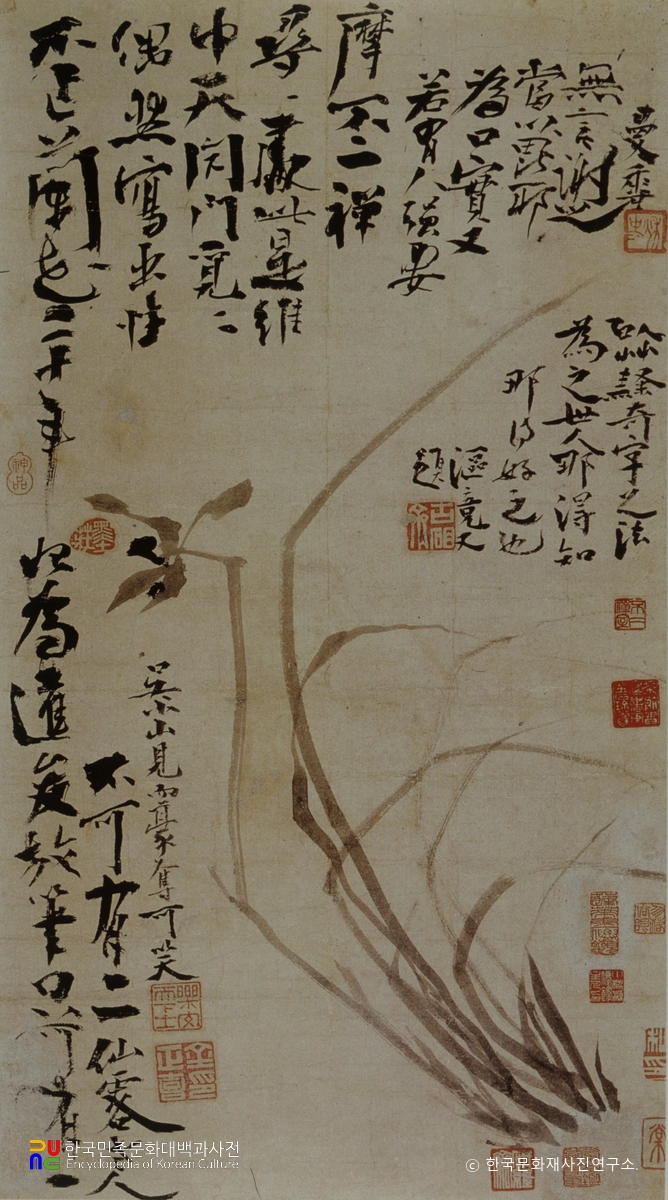 不作蘭花二十年
偶然寫出性
中天閉門覓〻
尋〻處此是維
摩不二禪
若有人强要
為口實又
當以毘耶
無言謝之
曼香
秋史
以草隸奇字之法
為之世人那得知
那得好之也
漚竟又
題
古硯齋
神品
墨莊
始為達俊放筆只可有一
不可有二仙客老人
吳小山見而豪奪可笑
金正喜印
한국민족문화대백과사전
Encyclopedia of Korean Culture
© 한국문화재사진연구소.